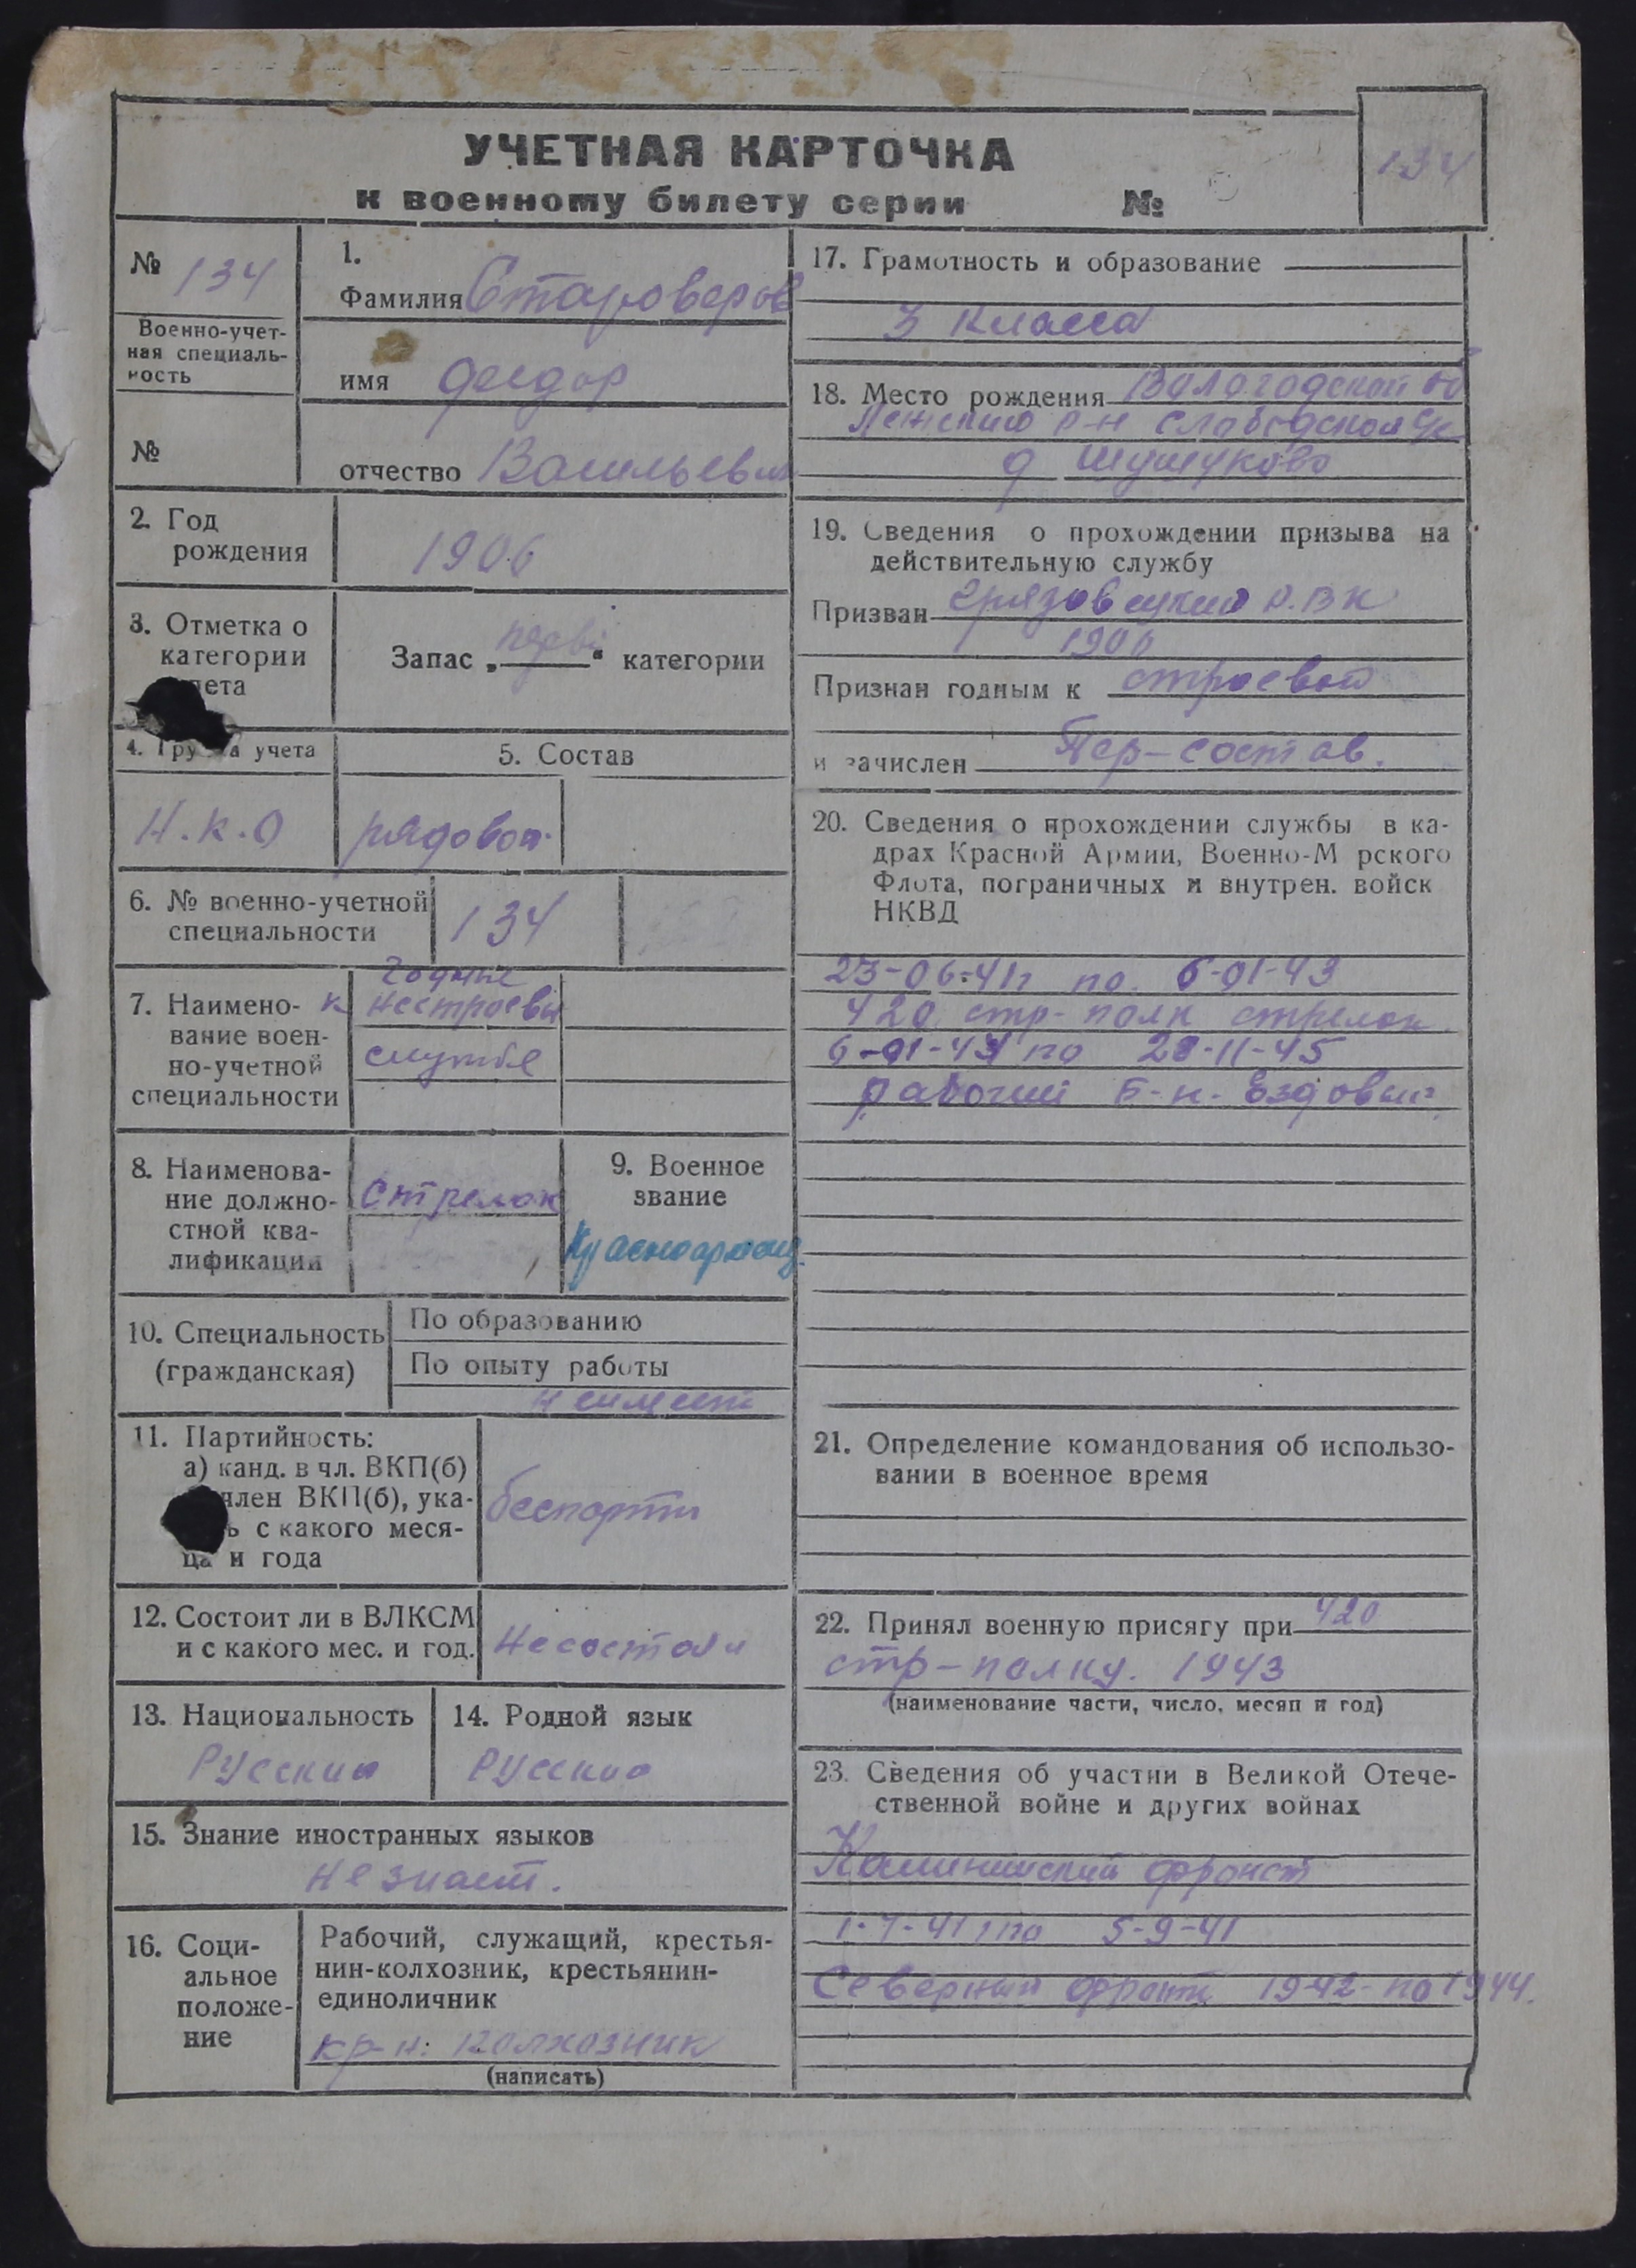 УЧЕТНАЯ КАРТОЧКА
к военному билету серии №
134
№ 134
Военно-учет-
ная специаль-
ность
№
1.
Фамилия Староверов
имя Феодор
отчество Васильевич
2. Год
рождения
1906
3. Отметка о
категории
Запас „перв“ категории
4. Гру а учета
Н.К.О
5. Состав
рядовой
6. № военно-учетной
специальности
134
7. Наимено-
вание воен-
но-учетной
специальности
годные
к нестроевы
службе
8. Наименова-
ние должно-
стной ква-
лификации
Стрелок
9. Военное
звание
Красноармеец
10. Специальность
(гражданская)
По образованию
По опыту работы
неимеет
11. Партийность:
а) канд. в чл. ВКП(б)
член ВКП(б), ука-
ь с какого меся-
ца и года
беспарти
12. Состоит ли в ВЛКСМ
и с какого мес. и год.
Несостоял
13. Национальность
Русский
14. Родной язык
Русский
15. Знание иностранных языков
не знает.
16. Соци-
альное
положе-
ние
Рабочий, служащий, крестья-
нин-колхозник, крестьянин-
единоличник
кр-н. колхозник
(написать)
17. Грамотность и образование
3 класса
18. Место рождения Вологодской об
Лежский р-н Слободской
д Шушуково
19. Сведения о прохождении призыва на
действительную службу
Призван Грязовецкий Р.В К
Признан годным к строевой
и зачислен Пер-состав.
20. Сведения о прохождении службы в ка-
драх Красной Армии, Военно-М рского
Флота, пограничных и внутрен. войск
НКВД
23-06-41г по 6-01-43
420 стр-полк стрелок
6-01-43 по 28-11-45
рабочий Б-н. Ездовый
21. Определение командования об использо-
вании в военное время
22. Принял военную присягу при 420
стр-полку. 1943
(наименование части, число, месяц и год)
23. Сведения об участии в Великой Отече-
ственной войне и других войнах
Калининский фронт
1-7-41 по 5-9-41
Северный фронт 1942 по 1944.